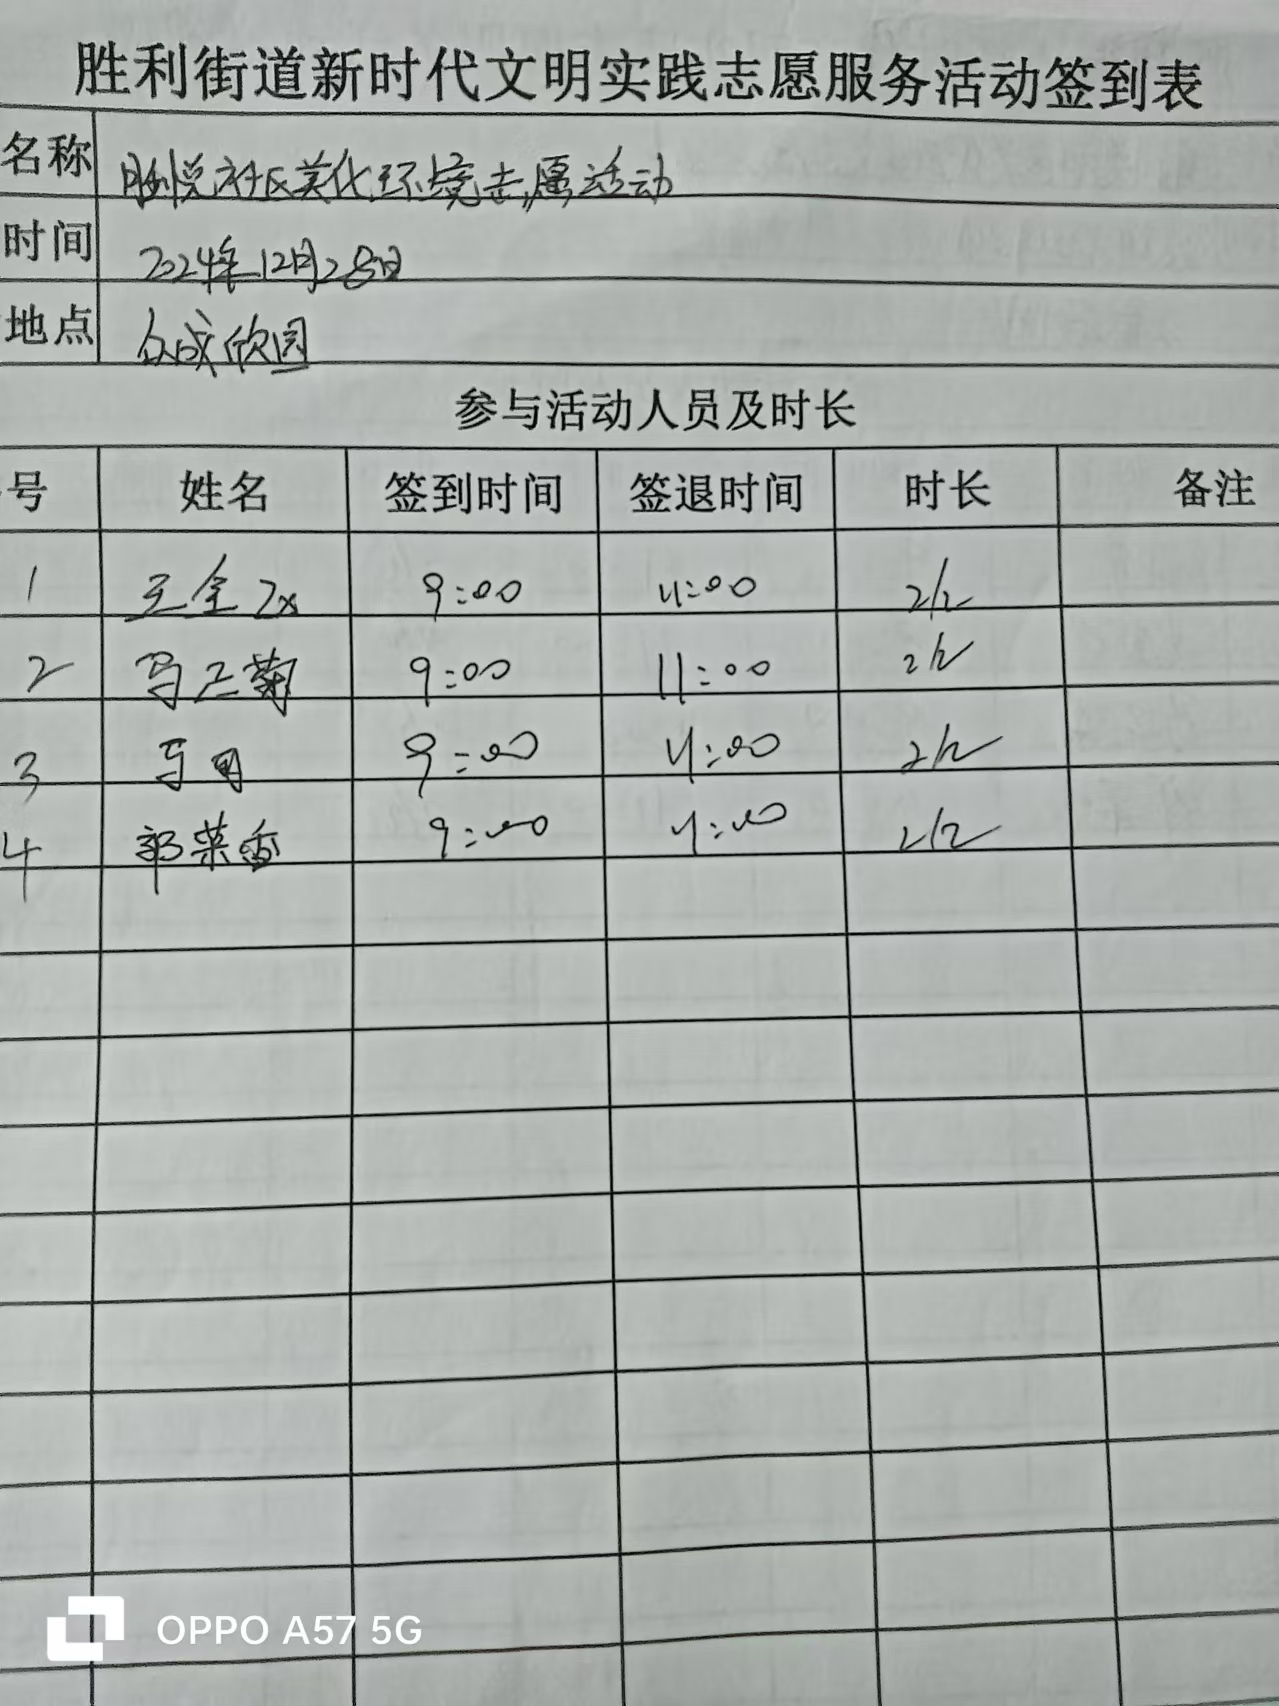 胜利街道新时代文明实践志愿服务活动签到表
名称 胜悦社区美化环境志愿活动
时间 2024年12月28日
地点 众成欣园
参与活动人员及时长
号 姓名 签到时间 签退时间 时长 备注
1 9:00 11:00 2h
2 马正菊 9:00 11:00 2h
3 马 9:00 11:00 2h
4 郭荣香 9:00 11:00 2h
OPPO A57 5G